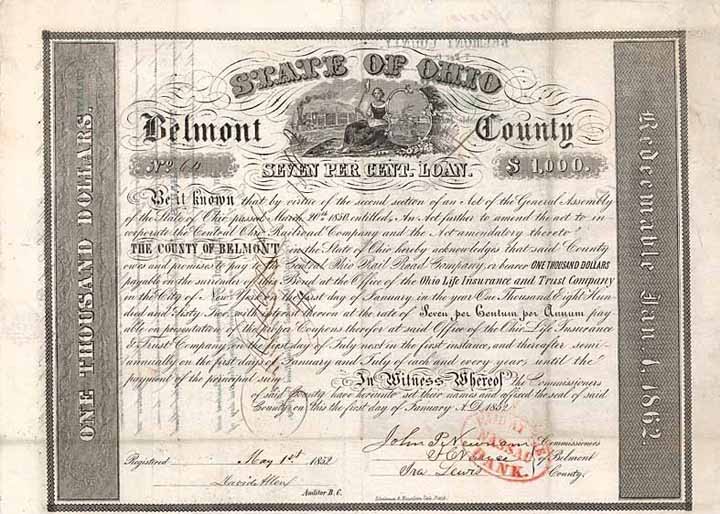 BELMONT COUNTY
STATE OF OHIO
Belmont County
No 60 SEVEN PER CENT. LOAN. $ 1,000.
ONE THOUSAND DOLLARS.
Redeemable Jan. 1, 1862
Be it known that by virtue of the second section of an Act of the General Assembly
of the State of Ohio passed March 20th 1850, entitled, An Act further to amend the act to in
corporate the Central Ohio Railroad Company and the Act amendatory thereto
THE COUNTY OF BELMONT in the State of Ohio hereby acknowledges that said County
owes and promises to pay to the Central Ohio Rail Road Company, or bearer ONE THOUSAND DOLLARS
payable on the surrender of this Bond at the Office of the Ohio Life Insurance and Trust Company
in the City of New York on the first day of January, in the year One Thousand Eight Hun
dred and Sixty Two, with interest thereon at the rate of Seven per Centum per Annum pay
able on presentation of the proper Coupons therefor at said Office of the Ohio Life Insurance
& Trust Company, on the first day of July next in the first instance, and thereafter semi-
annually on the first days of January and July of each and every year, until the
payment of the principal sum
In Witness Whereof the Commissioners
of said County have hereunto set their names and affixed the seal of said
County on this the first day of January A.D. 1852
John P. Newnam Commissioners
of Belmont
Ira Lewis County.
Registered May 1st 1852
David Allen
Auditor B. C.
BANK.